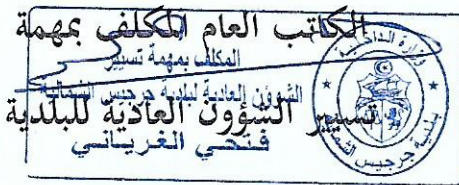 الكاتب العام المكلف بمهمة
المكلف بمهمة تسيير
الشؤون العادية لبلدية جرجيس الشمالية
تسيير الشؤون العادية للبلدية
فتحي الغرياني
وزارة الداخلية
بلدية جرجيس